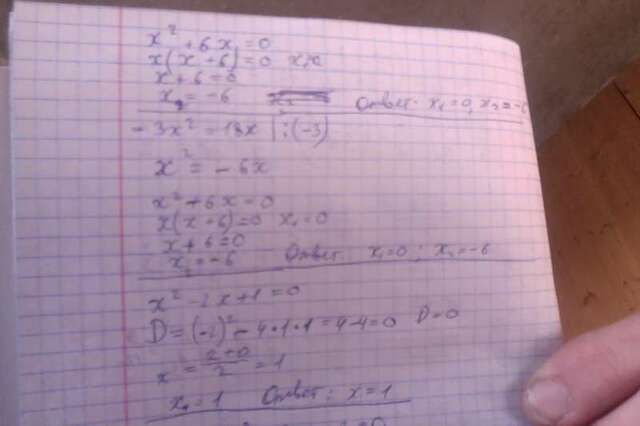 x² + 6x = 0
x(x + 6) = 0 x₁=0
x + 6 = 0
x₂ = -6 Ответ: x₁ = 0, x₂ = -6
-3x² = 18x | :(-3)
x² = -6x
x² + 6x = 0
x(x + 6) = 0 x₁ = 0
x + 6 = 0
x₂ = -6 Ответ: x₁ = 0 ; x₂ = -6
x² - 2x + 1 = 0
D = (-2)² - 4·1·1 = 4-4 = 0 D = 0
x = (2+0)/2 = 1
x₁ = 1 Ответ: x = 1